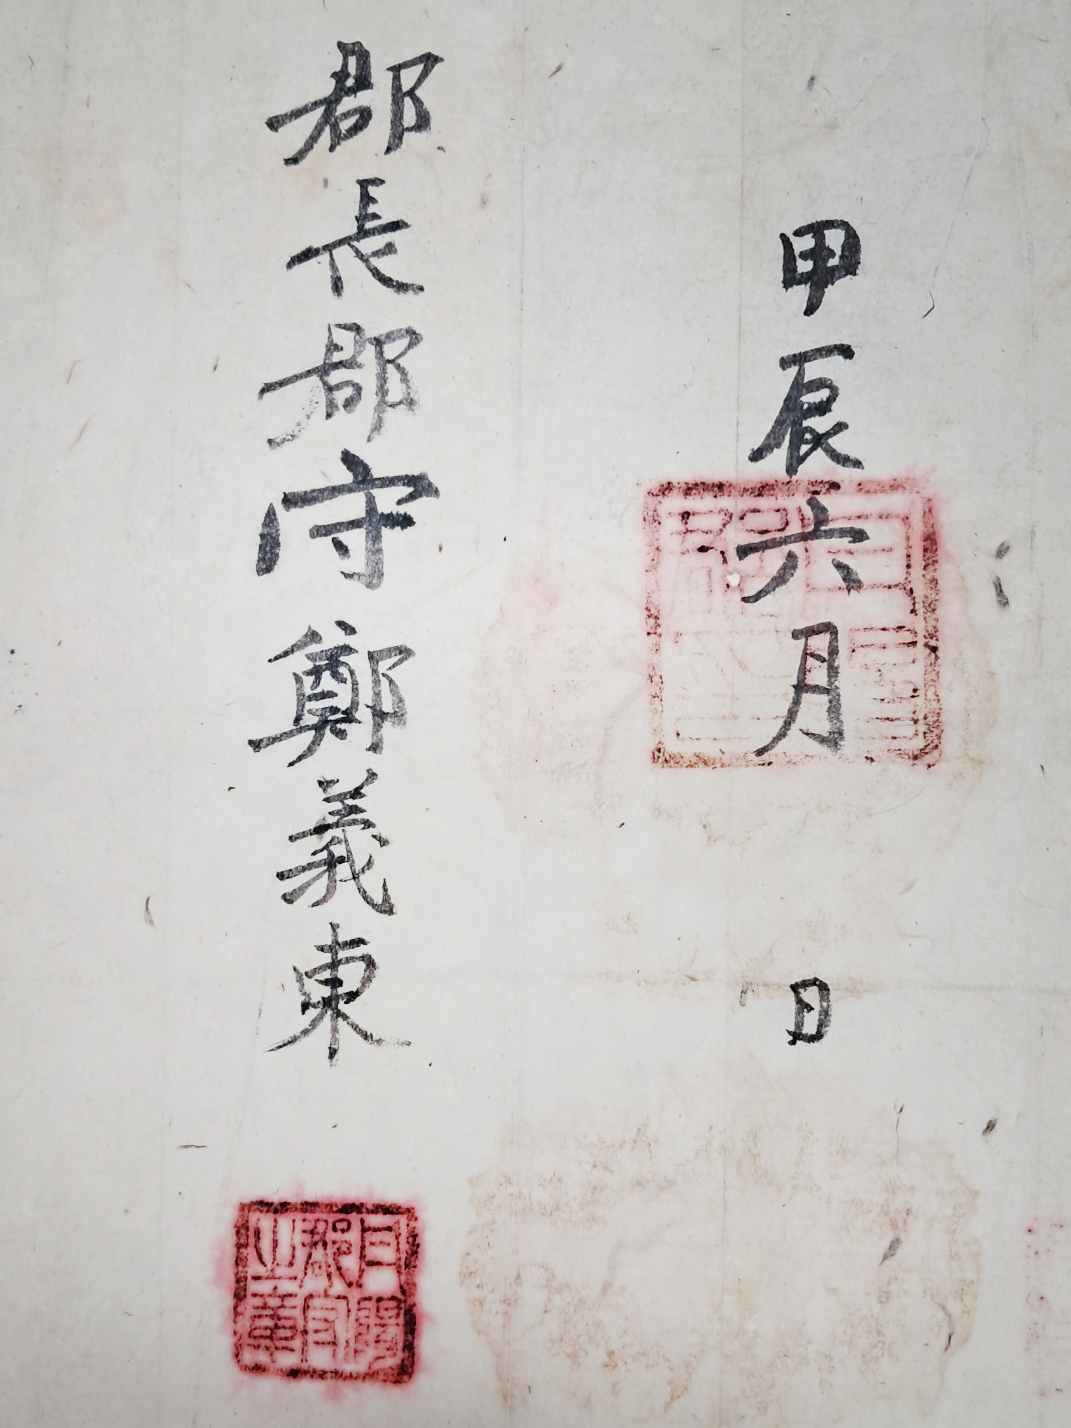 甲辰六月 日
郡長郡守鄭義東